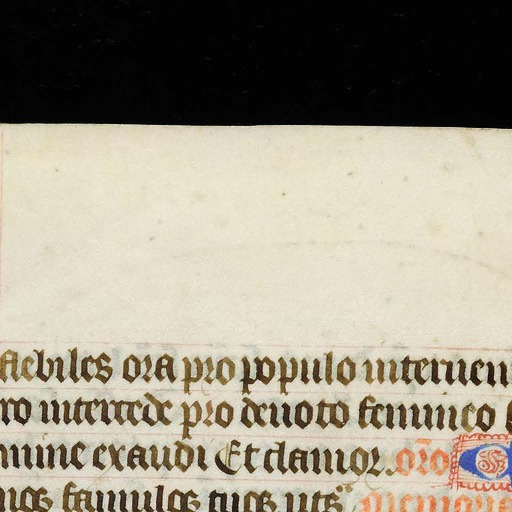 flebiles ora pro populo interuen
ro intercede pro deuoto femineo
mine exaudi Et clamor. oro
nos famulos tuos uts